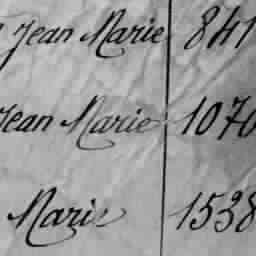 Jean Marie 841
Jean Marie 1070
Marie 1538